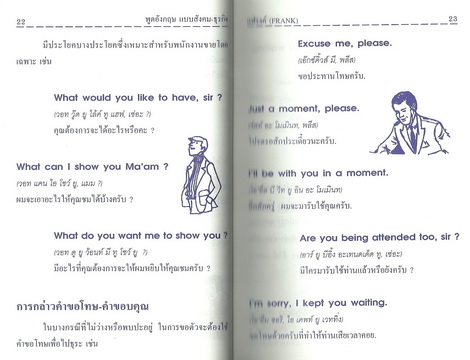 22
พูดอังกฤษ แบบสังคม-ธุรกิจ
มีประโยคบางประโยคซึ่งเหมาะสำหรับพนักงานขายโดย
เฉพาะ เช่น
What would you like to have, sir ?
(วอท วู๊ด ยู ไล้ค์ ทู แฮฟ, เซ่อะ ?)
คุณต้องการจะได้อะไรหรือคะ ?
What can I show you Ma'am ?
(วอท แคน ไอ โชว์ ยู, แมม ?)
ผมจะเอาอะไรให้คุณชมได้บ้างครับ ?
What do you want me to show you ?
(วอท ดู ยู ว้อนท์ มี ทู โชว์ ยู ?)
มีอะไรที่คุณต้องการจะให้ผมหยิบให้คุณชมครับ ?
การกล่าวคำขอโทษ-คำขอบคุณ
ในบางกรณีที่ไม่ว่างหรือพบปะอยู่ ในการขอตัวจะต้องใช้
คำขอโทษเพื่อไปธุระ เช่น
(FRANK)
23
Excuse me, please.
(เอ๊กซ์คิ้วส์ มี, พลีส)
ขอประทานโทษครับ.
Just a moment, please.
อะ โมเม้นท, พลีส)
โปรดรอสักประเดี๋ยวนะครับ.
I'll be with you in a moment.
บี วิธ ยู อิน อะ โมเม้นท)
สักครู่ ผมจะมารับใช้คุณครับ.
Are you being attended too, sir ?
(อาร์ ยู บีอิ้ง อะเทนเด็ด ทู, เซ่อะ)
มีใครมารับใช้ท่านแล้วหรือยังครับ ?
I'm sorry, I kept you waiting.
ซอรี่ ไอ เคพท์ ยู เวททิ่ง)
ขอโทษด้วยครับที่ทำให้ท่านเสียเวลาคอย.